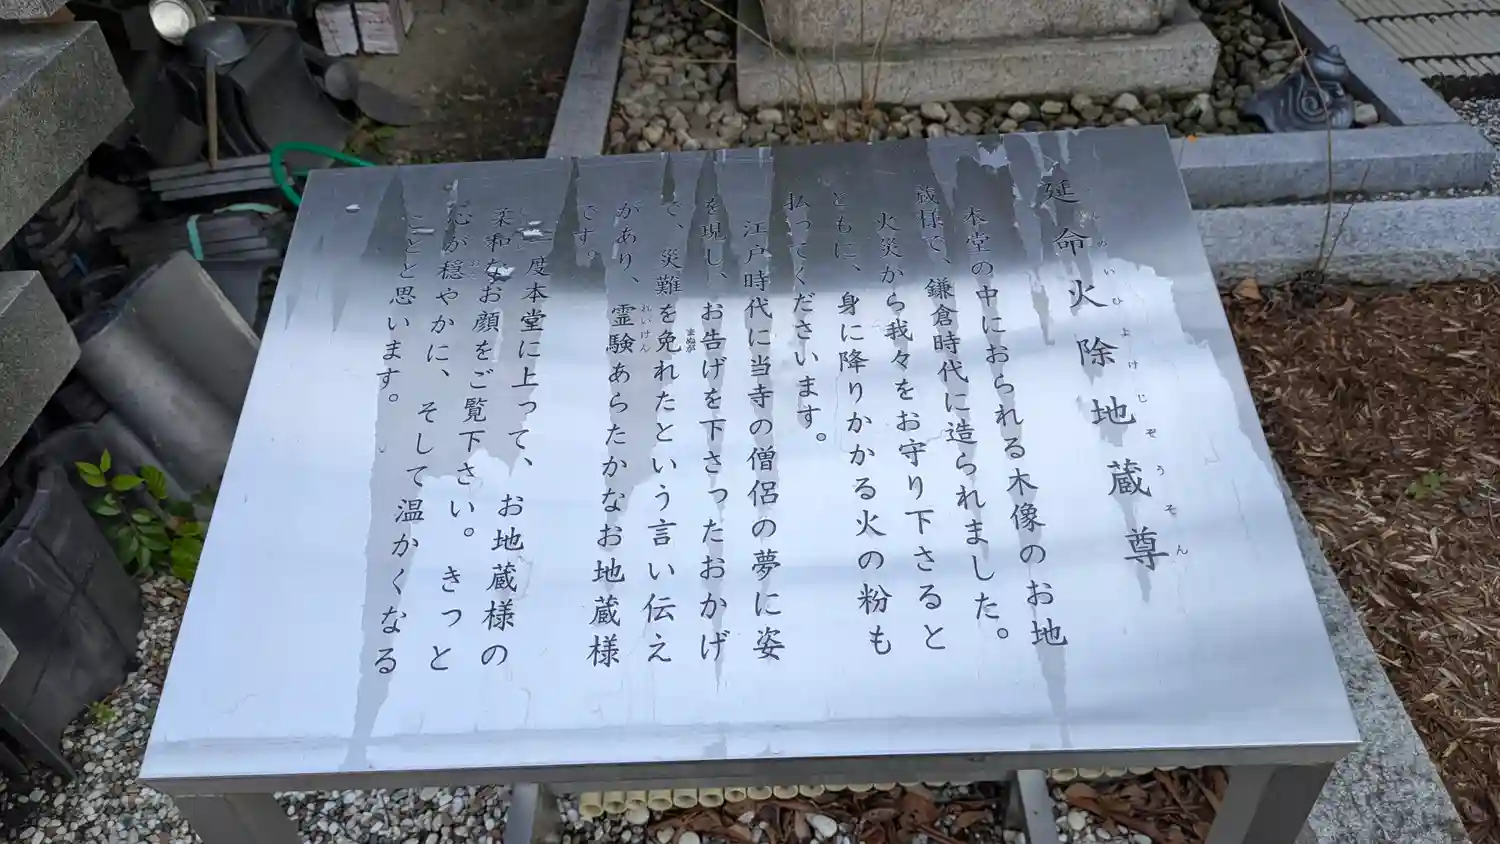 延命火除地蔵尊
本堂の中におられる木像のお地
蔵様で、鎌倉時代に造られました。
火災から我々をお守り下さると
ともに、身に降りかかる火の粉も
払ってくださいます。
江戸時代に当寺の僧侶の夢に姿
を現し、お告げを下さったおかげ
で、災難を免れたという言い伝え
があり、霊験あらたかなお地蔵様
です。
一度本堂に上って、お地蔵様の
柔和なお顔をご覧下さい。きっと
心が穏やかに、そして温かくなる
ことと思います。